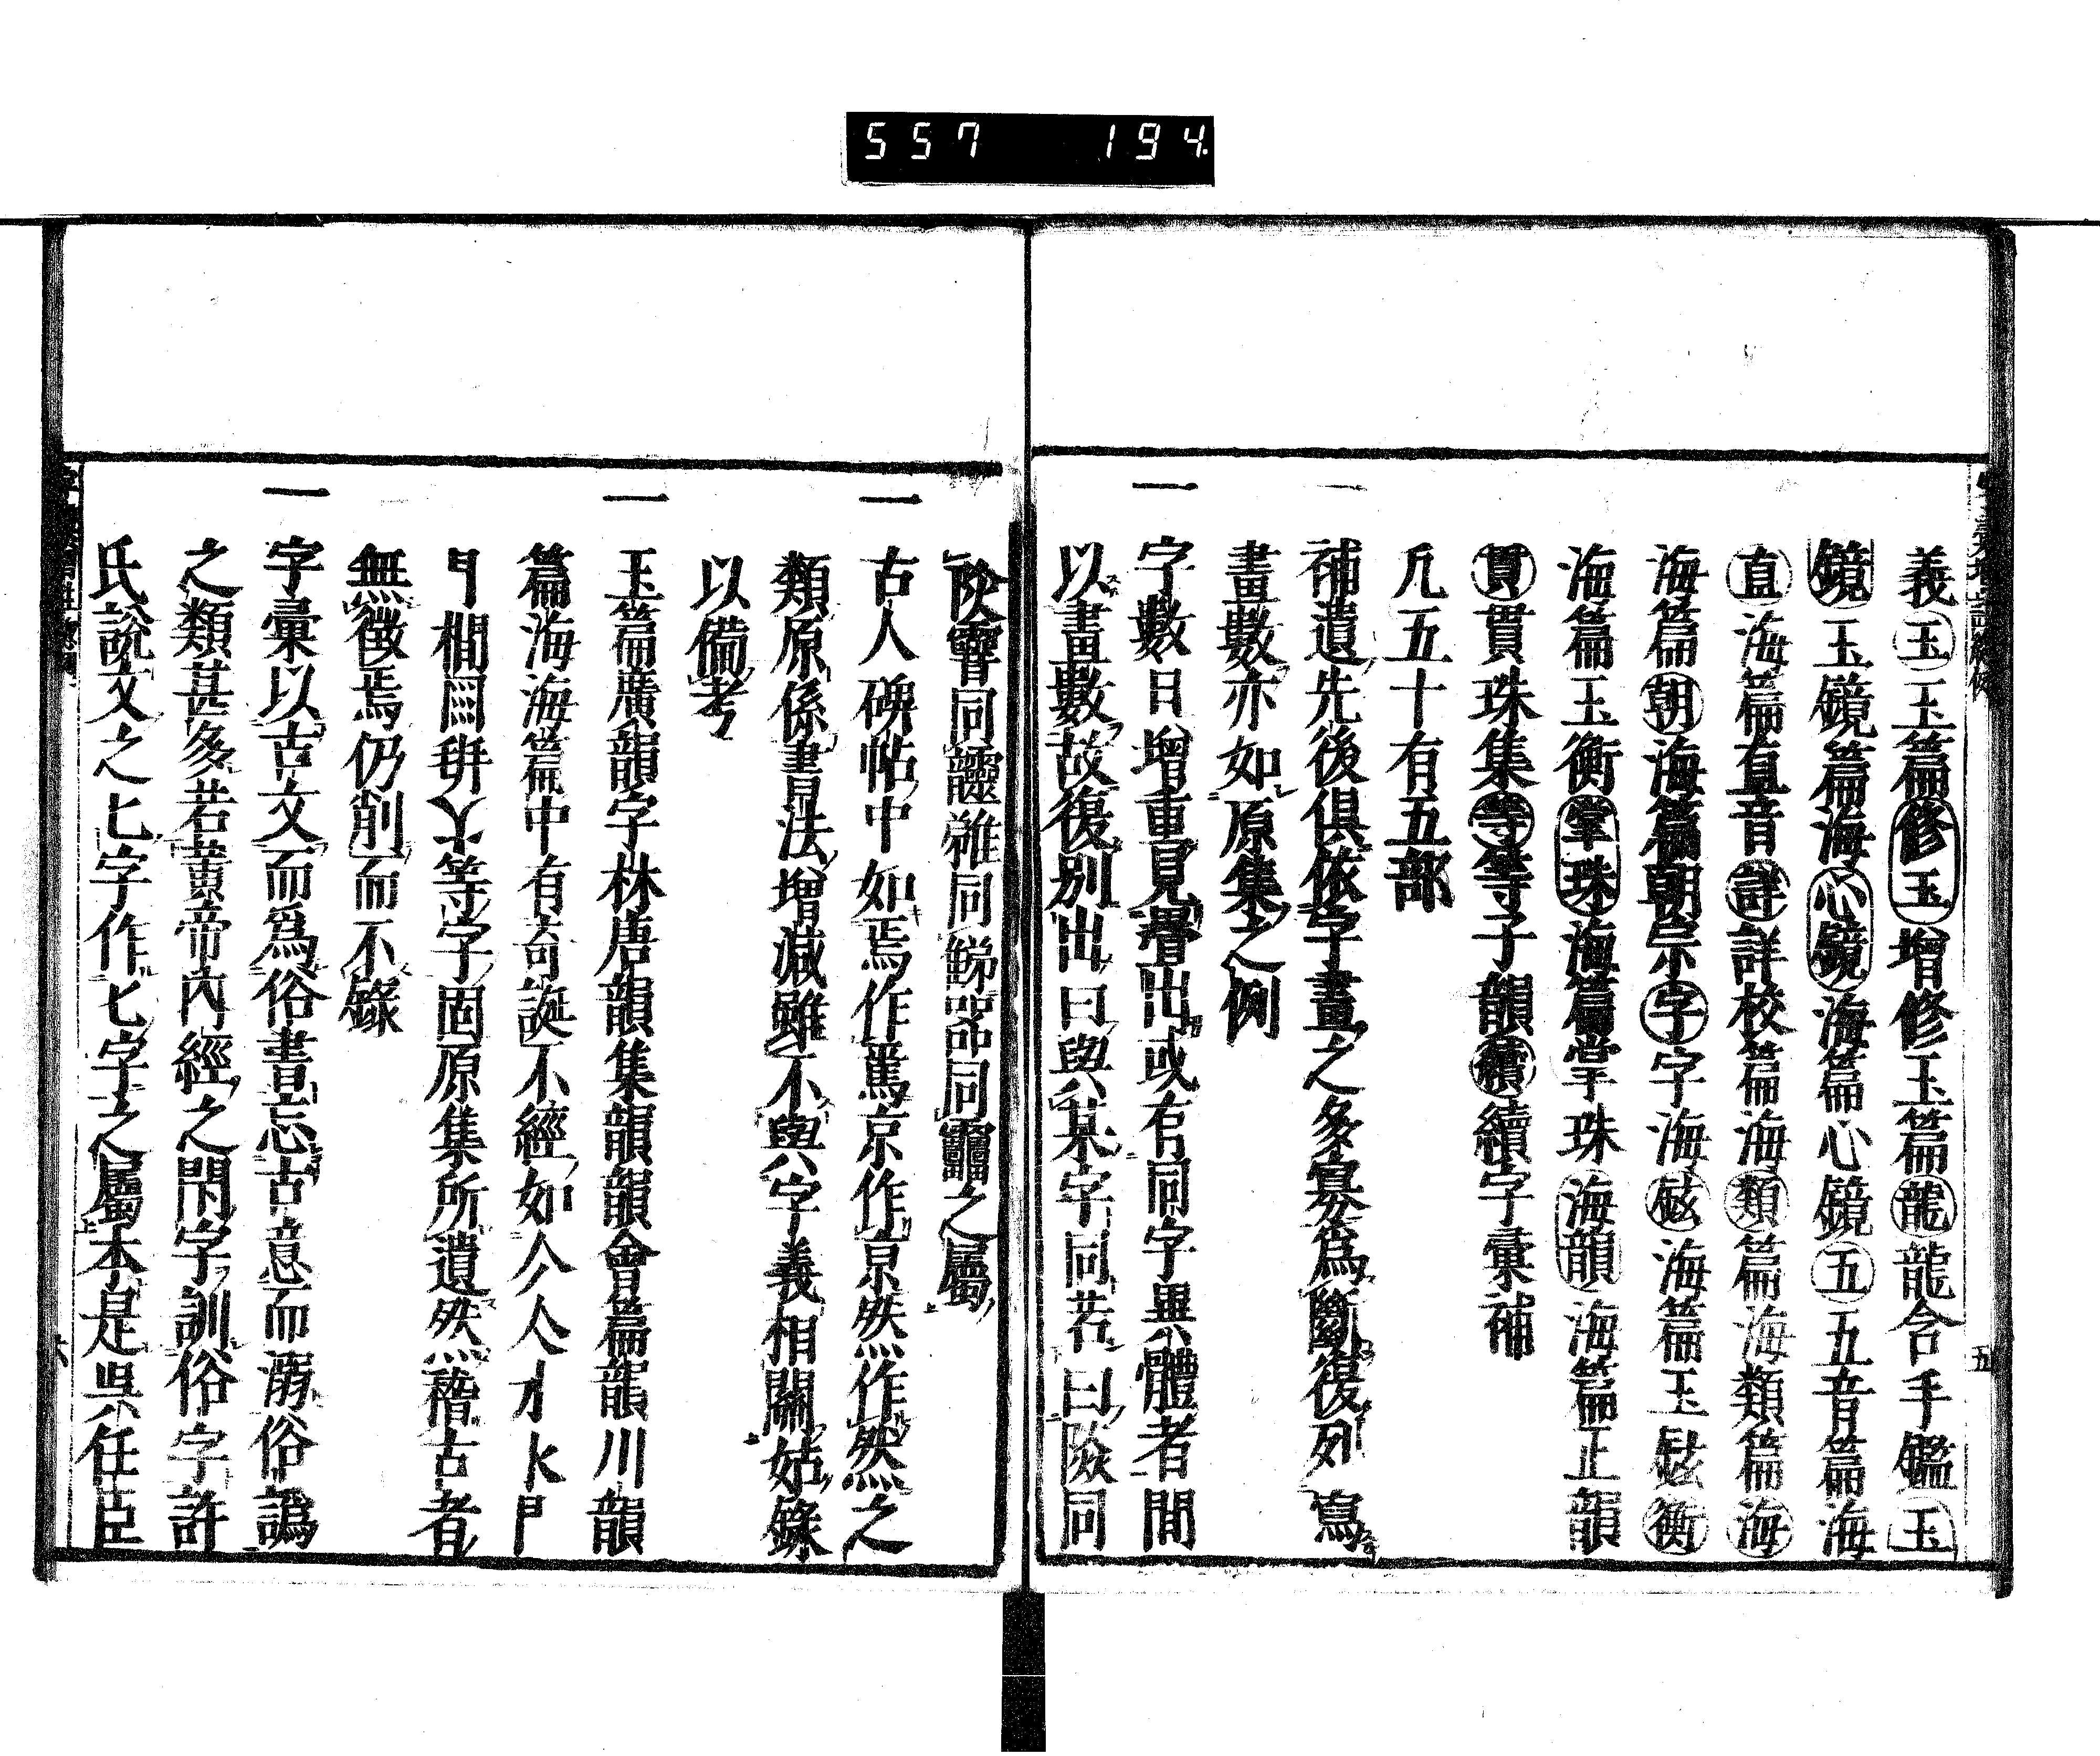 557 194
義玉玉篇修玉增修玉篇龍龍合手鑑玉
鏡玉鏡篇海心鏡海篇心鏡五五音篇海
直海篇直音詳詳校篇海類篇海類篇海
海篇朝海篇朝宗字字海海篇玉衡
海篇玉衡掌珠海篇掌珠海韻海篇正韻
貫貫珠集等等子韻續續字彙補
凡五十有五部
一補遺先後俱依字畫之多寡爲斷復列寫
畫數亦如原集之例
一字數日增重見疊出或有同字異體者間
以畫數故復別出曰與某字同若曰同
同同同之屬
一古人碑帖中如焉作篤京作亰然作之
類原係書法增減雖不與字義相關姑錄
以備考
一玉篇廣韻字林唐韻集韻韻會篇韻川韻
篇海海篇中有奇誕不經如
等字固原集所遺然稽古者
無徵焉仍削而不錄
一字彙以古文而爲俗書忘古意而溺俗譌
之類甚多若黃帝內經之閇字訓俗字許
氏說文之匕字作七字之屬本是吳任臣
五
六